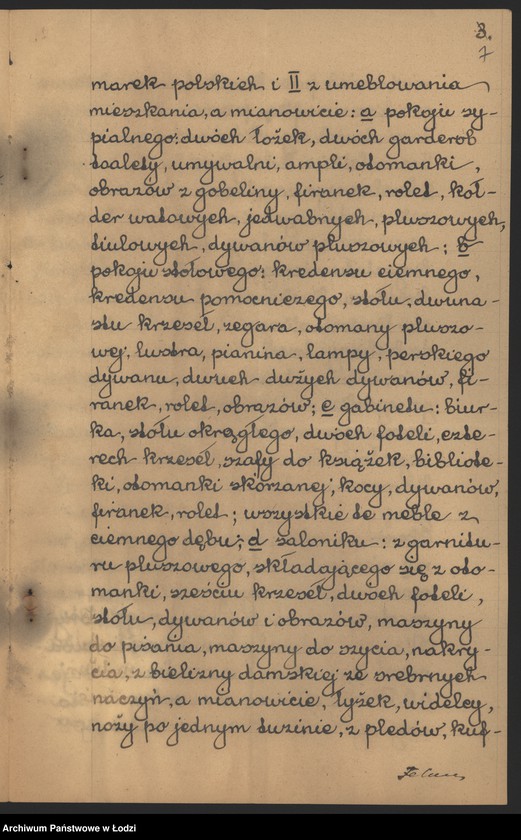 3.
7
marek polskich i II z umeblowania
mieszkania, a mianowicie: a pokoju sy-
pialnego: dwóch łożek, dwóch garderob
toalety, umywalni, ampli, otomanki,
obrazów z gobeliny, firanek, rolet, koł-
der watowych, jedwabnych, pluszowych,
tiulowych, dywanów pluszowych; b
pokoju stołowego: kredensu ciemnego,
kredensu pomocniczego, stołu, dwuna-
stu krzeseł, zegara, otomany pluszo-
wej, lustra, pianina, lampy, perskiego
dywanu, dwuch dużych dywanów, fi-
ranek, rolet, obrazów; c gabinetu: biur-
ka, stołu okrągłego, dwóch foteli, czte-
rech krzeseł, szafy do książek, bibliote-
ki, otomanki skórzanej, kocy, dywanów,
firanek, rolet; wszystkie te meble z
ciemnego dębu; d saloniku: z garnitu-
ru pluszowego, składającego się z oto-
manki, sześciu krzeseł, dwóch foteli,
stołu, dywanów i obrazów, maszyny
do pisania, maszyny do szycia, nakry-
cia, z bielizny damskiej ze srebrnych
naczyń, a mianowicie, łyżek, widelcy,
noży po jednym tuzinie, z pledów, kuf-
Archiwum Państwowe w Łodzi